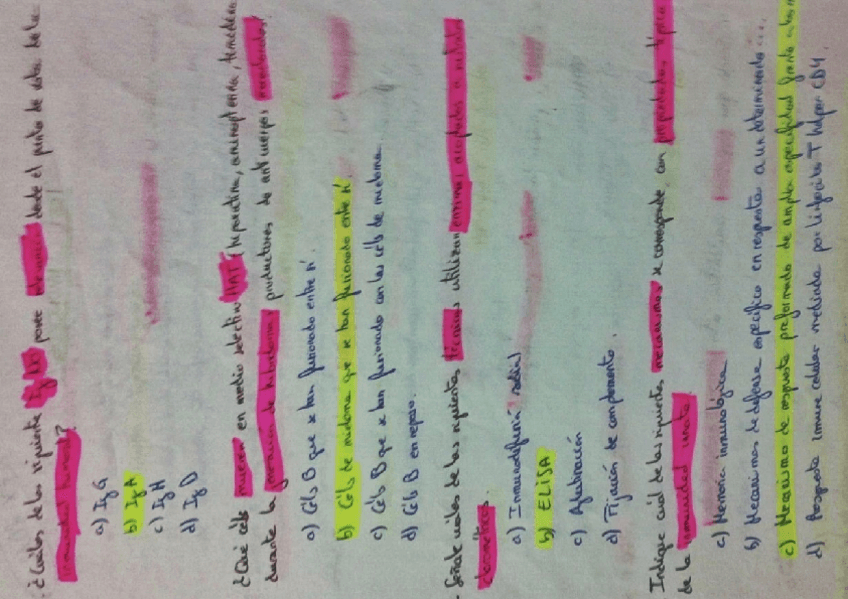 ¿Cuáles de las siguiente Igs posee relevancia desde el punto de vista de la
inmunidad humoral?
a) IgG
b) IgA
c) IgM
d) IgD
¿Qué céls mueren en medio selectivo HAT (hipoxantina, aminopterina, timidina
durante la formación de hibridomas productores de anticuerpos monoclonales?
a) Céls B que se han fusionado entre sí.
b) Céls de mieloma que se han fusionado entre sí.
c) Céls B que se han fusionado con las céls de mieloma.
d) Céls B en reposo.
- Señale cuáles de las siguientes técnicas utilizan enzimas acopladas a
colorimétricos.
a) Inmunodifusión radial
b) ELISA
c) Aglutinación
d) Fijación de complemento.
Indique cuál de los siguientes mecanismos se corresponde con propiedades típicas
de la inmunidad innata.
a) Memoria inmunológica
b) Mecanismos de defensa específico en respuesta a un determinado...
c) Mecanismo de respuesta preformado de amplia especificidad frente a
d) Respuesta inmune celular mediada por linfocito T helper CD4.